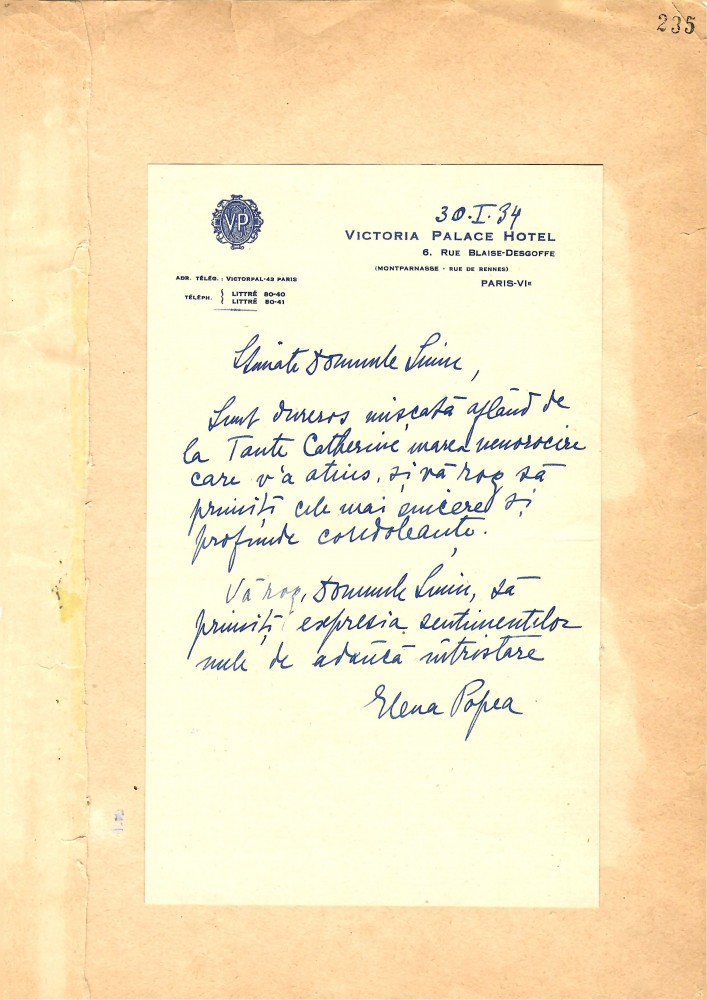 235
VP
30.I.34
VICTORIA PALACE HOTEL
6. RUE BLAISE-DESGOFFE
(MONTPARNASSE - RUE DE RENNES)
PARIS-VIE
ADR. TÉLÉG. : VICTORPAL-43 PARIS
TÉLÉPH. { LITTRÉ 80-40
LITTRÉ 80-41
Stimate Domnule
Sunt dureros mişcată aflând de
la Tante Catherine, marea nenorocire
care v'a atins, şi vă rog să
primiţi cele mai sincere şi
profunde condoleanţe.
Vă rog, Domnule să
primiţi expresia sentimentelor
mele de adâncă întristare
Elena Popea